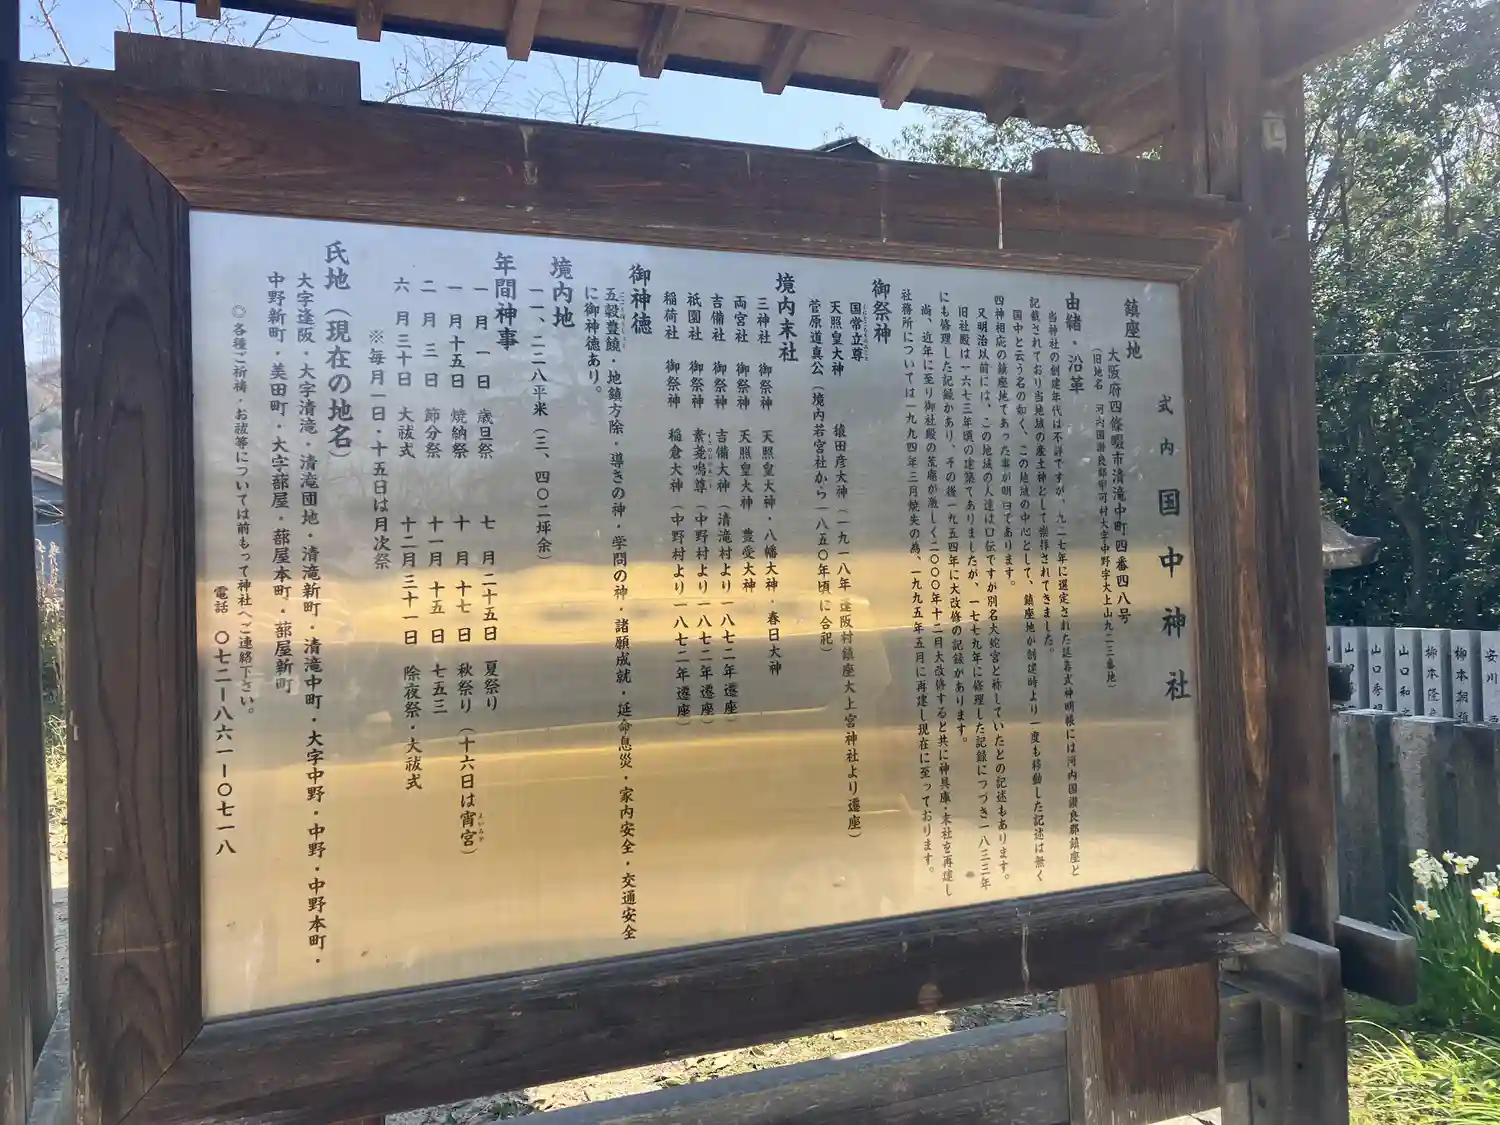 式内 国中神社
鎮座地
大阪府四條畷市清滝中町四番四八号
(旧地名 河内国讃良郡甲可村大字中野字大上山九二三番地)
由緒・沿革
当神社の創建年代は不詳ですが、九二七年に選定された延喜式神明帳には河内国讃良郡鎮座と
記載されており当地域の産土神として崇拝されてきました。
国中と云う名の如く、この地域の中心として、鎮座地が創建時より一度も移動した記述は無く
四神相応の鎮座地であった事が明白であります。
又明治以前には、この地域の人達は口伝ですが別名大蛇宮と称していたとの記述もあります。
旧社殿は一六七三年頃の建築でありましたが、一七七九年に修理した記録につづき一八三三年
にも修理した記録があり、その後一九五四年に大改修の記録があります。
尚、近年に至り御社殿の荒廃が激しく二〇〇〇年十二月大改修すると共に神具庫・末社を再建し
社務所については一九九四年三月焼失の為、一九九五年五月に再建し現在に至っております。
御祭神
国常立尊 猿田彦大神(一九一八年 逢阪村鎮座大上宮神社より遷座)
天照皇大神
菅原道真公(境内若宮社から一八五〇年頃に合祀)
境内末社
三神社 御祭神 天照皇大神・八幡大神・春日大神
両宮社 御祭神 天照皇大神 豊受大神
吉備社 御祭神 吉備大神(清滝村より一八七二年遷座)
祇園社 御祭神 素菱嗚尊(中野村より一八七二年遷座)
稲荷社 御祭神 稲倉大神(中野村より一八七二年遷座)
御神徳
五穀豊饒・地鎮方除・導きの神・学問の神・諸願成就・延命息災・家内安全・交通安全
に御神徳あり。
境内地
一一、二二八平米(三、四〇二坪余)
年間神事
一月 一日 歳旦祭 七月二十五日 夏祭り
一月十五日 焼納祭 十月 十七日 秋祭り(十六日は宵宮)
よいみや
二月 三日 節分祭 十一月 十五日 七五三
六月三十日 大祓式 十二月三十一日 除夜祭・大祓式
※毎月一日・十五日は月次祭
氏地(現在の地名)
大字逢阪・大字清滝・清滝団地・清滝新町・清滝中町・大字中野・中野・中野本町・
中野新町・美田町・大字蔀屋・蔀屋本町・蔀屋新町
◎各種ご祈祷・お祓等については前もって神社へご連絡下さい。
電話 〇七二ー八六一ー〇七一八
山口秀
山口和
柳本隆
柳本朝
安川